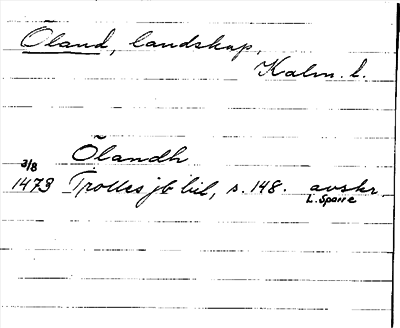 Öland, landskap,
Kalm. l.
Ölandh
3/8
1473 Trolles jb bil, s. 148. avskr.
L. Sparre